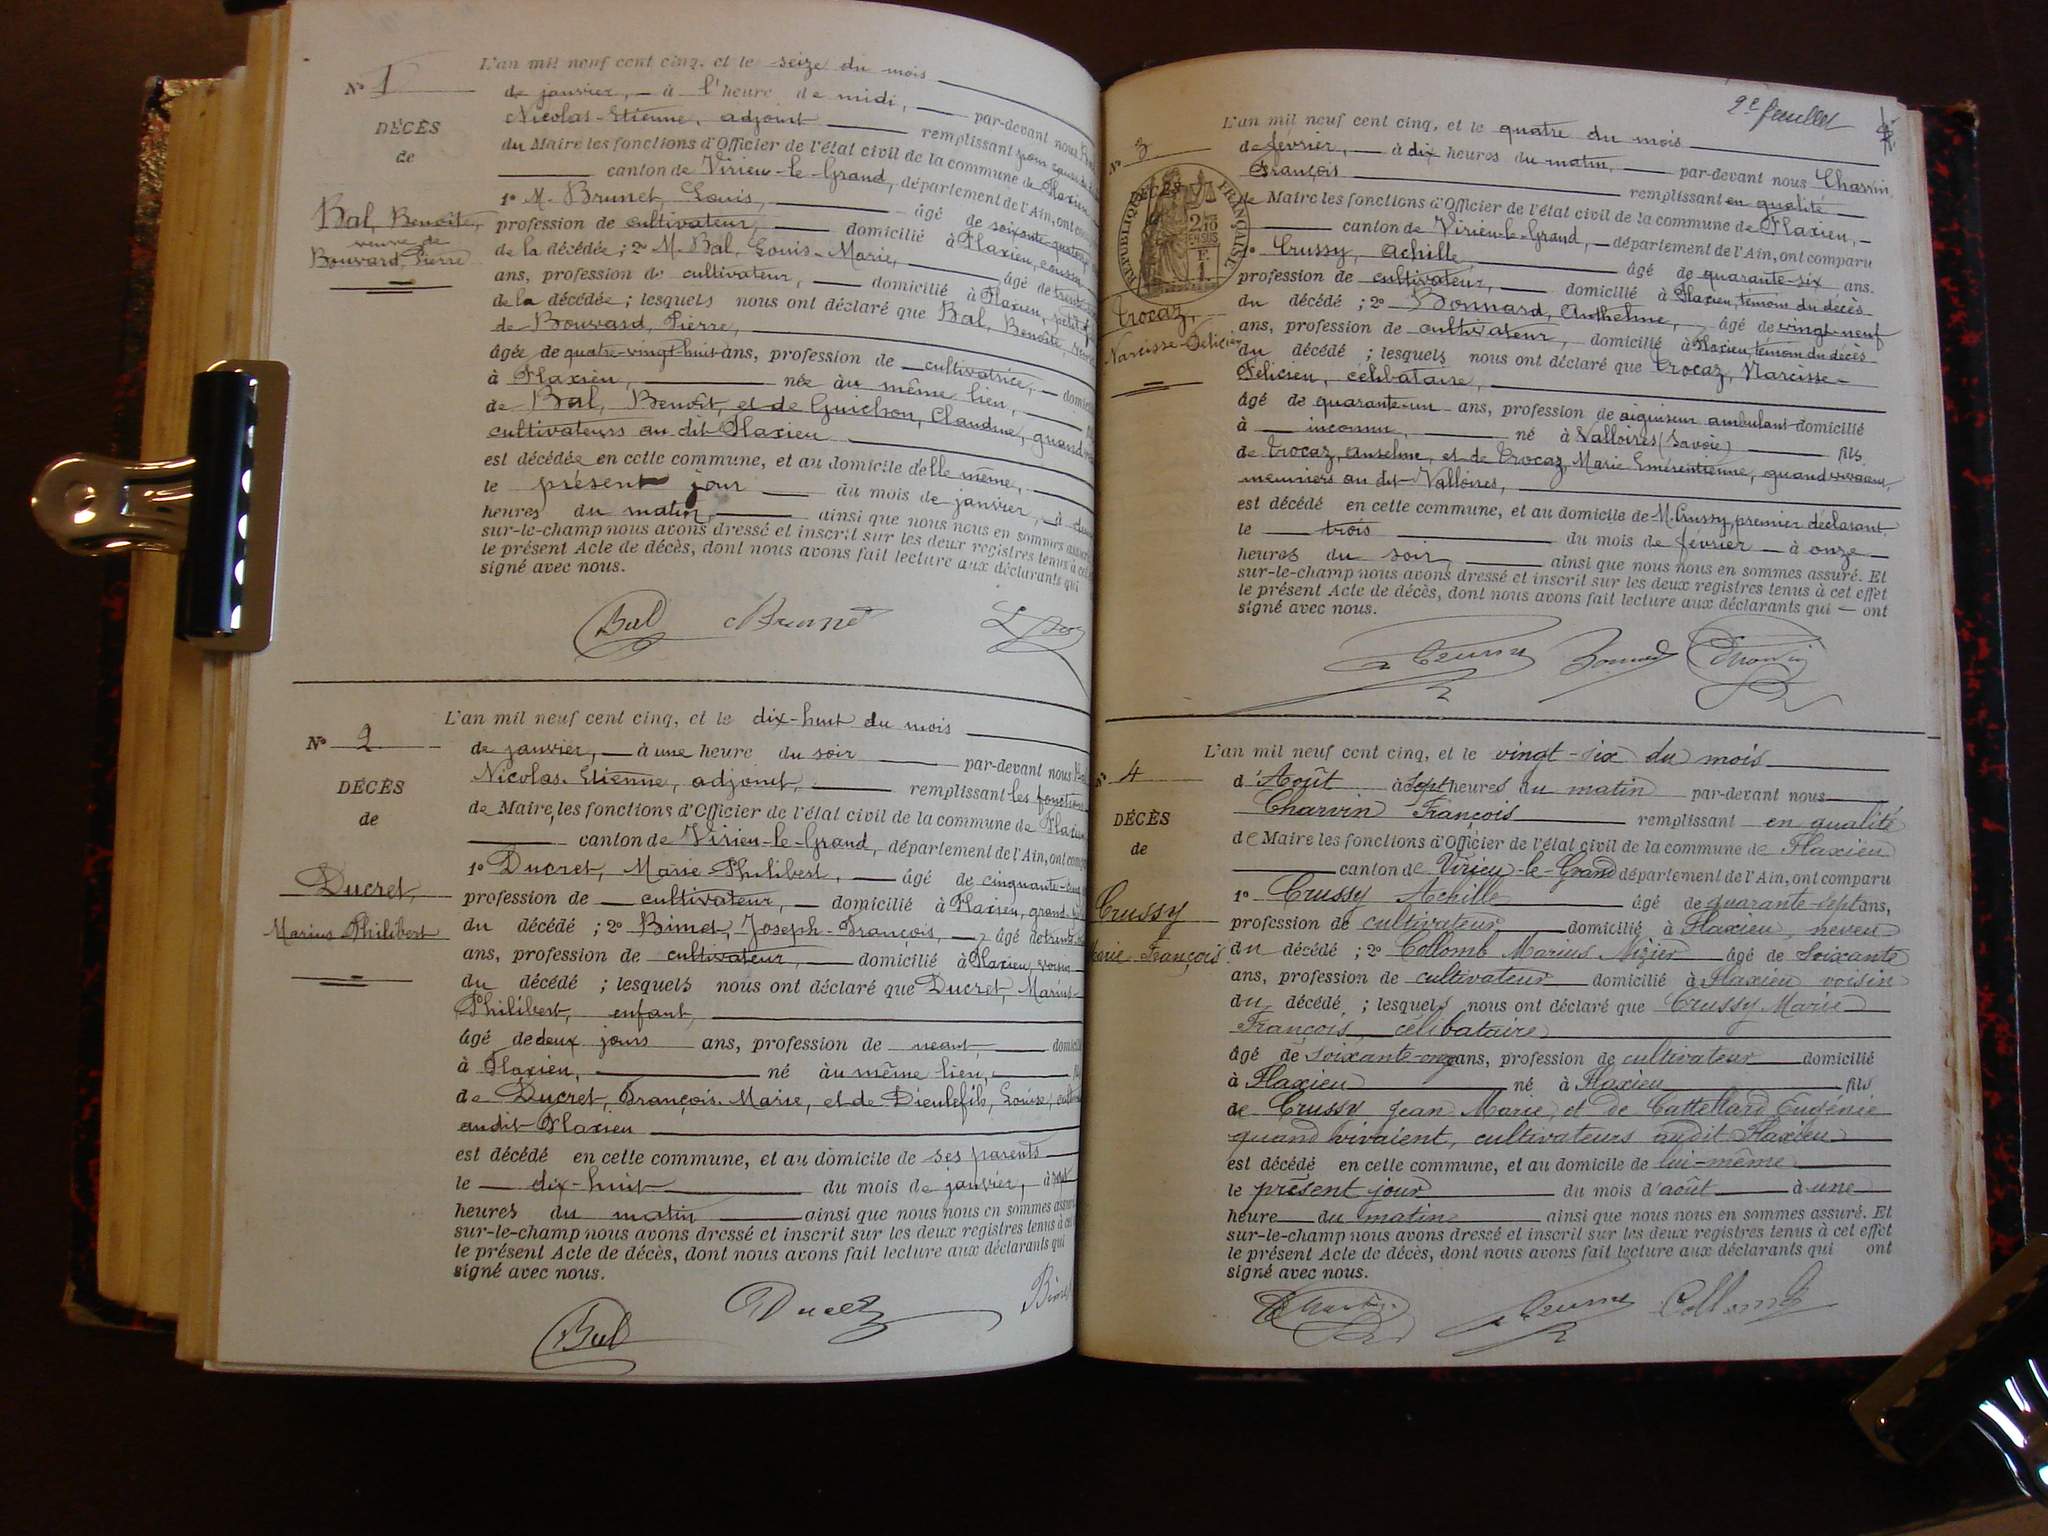 N° 1
DÉCÈS
de
Bal, Benoîte,
veuve de
Bouvard, Pierre
L'an mil neuf cent cinq, et le seize du mois
de janvier, à l'heure de midi, par-devant nous
Nicolas-Etienne, adjoint remplissant pour cause
du Maire les fonctions d'Officier de l'état civil de la commune de Flaxieu
canton de Virieu-le-Grand, département de l'Ain, ont
1° M. Brunet, Louis, âgé de soixante-quatorze
profession de cultivateur, domicilié à Flaxieu, cousin
de la décédée ; 2° M. Bal, Louis-Marie, âgé de
ans, profession de cultivateur, domicilié à Flaxieu,
de la décédée ; lesquels nous ont déclaré que Bal, Benoîte,
de Bouvard, Pierre,
âgée de quatre-vingt-huit ans, profession de cultivatrice,
à Flaxieu, née au même lieu,
de Bal, Benoît, et de Guichon, Claudine, quand
cultivateurs au dit Flaxieu
est décédée en cette commune, et au domicile d'elle même,
le présent jour du mois de janvier, à
heures du matin, ainsi que nous nous en sommes
sur-le-champ nous avons dressé et inscrit sur les deux registres tenus à
le présent Acte de décès, dont nous avons fait lecture aux déclarants qui
signé avec nous.
Bal Brunet
N° 2
DÉCÈS
de
Ducret,
Marius Philibert
L'an mil neuf cent cinq, et le dix-huit du mois
de janvier, à une heure du soir par-devant nous
Nicolas-Etienne, adjoint, remplissant les fonctions
de Maire, les fonctions d'Officier de l'état civil de la commune de Flaxieu
canton de Virieu-le-Grand, département de l'Ain, ont
1° Ducret, Marie-Philibert, âgé de cinquante-cinq
profession de cultivateur, domicilié à Flaxieu, grand
du décédé ; 2° Binet, Joseph-François, âgé de
ans, profession de cultivateur, domicilié à Flaxieu, voisin
du décédé ; lesquels nous ont déclaré que Ducret, Marius-
Philibert, enfant,
âgé de deux jours ans, profession de neant,
à Flaxieu, né au même lieu,
de Ducret, François-Marie, et de Dieulefils, Louise,
audit Flaxieu
est décédé en cette commune, et au domicile de ses parents
le dix-huit du mois de janvier, à sept
heures du matin ainsi que nous nous en sommes
sur-le-champ nous avons dressé et inscrit sur les deux registres tenus à
le présent Acte de décès, dont nous avons fait lecture aux déclarants qui
signé avec nous.
Bal Ducret Binet
2e feuillet
N° 3
DÉCÈS
RÉPUBLIQUE FRANÇAISE
2/10 EN SUS
Trocaz,
Narcisse-Félicien
L'an mil neuf cent cinq, et le quatre du mois
de février, à dix heures du matin, par-devant nous Charvin
François remplissant en qualité
de Maire les fonctions d'Officier de l'état civil de la commune de Flaxieu,
canton de Virieu-le-Grand, département de l'Ain, ont comparu
1° Crussy, Achille, âgé de quarante-six ans.
profession de cultivateur, domicilié à Flaxieu, témoin du décès
du décédé ; 2° Bonnard, Anthelme, âgé de vingt-neuf
ans, profession de cultivateur, domicilié à Flaxieu, témoin du décès
du décédé ; lesquels nous ont déclaré que Trocaz, Narcisse-
Félicien, célibataire,
âgé de quarante-un ans, profession de aiguiseur ambulant domicilié
à inconnu, né à Valloires (Savoie) fils
de Trocaz, Anselme, et de Trocaz, Marie Emérentienne, quand vivaient,
meuniers au dit Valloires,
est décédé en cette commune, et au domicile de M. Crussy, premier déclarant
le trois du mois de février à onze
heures du soir, ainsi que nous nous en sommes assuré. Et
sur-le-champ nous avons dressé et inscrit sur les deux registres tenus à cet effet
le présent Acte de décès, dont nous avons fait lecture aux déclarants qui ont
signé avec nous.
Crussy Bonnard Charvin
N° 4
DÉCÈS
de
Crussy
Marie François
L'an mil neuf cent cinq, et le vingt-six du mois
d'Août à sept heures du matin par-devant nous
Charvin François remplissant en qualité
de Maire les fonctions d'Officier de l'état civil de la commune de Flaxieu
canton de Virieu-le-Grand département de l'Ain, ont comparu
1° Crussy Achille âgé de quarante-sept ans,
profession de cultivateur domicilié à Flaxieu, neveu
du décédé ; 2° Collomb Marius Nizier âgé de soixante
ans, profession de cultivateur domicilié à Flaxieu voisin
du décédé ; lesquels nous ont déclaré que Crussy Marie
François, célibataire
âgé de soixante-onze ans, profession de cultivateur domicilié
à Flaxieu né à Flaxieu fils
de Crussy Jean Marie et de Cattelard Eugénie
quand vivaient, cultivateurs audit Flaxieu
est décédé en cette commune, et au domicile de lui-même
le présent jour du mois d'août à une
heure du matin ainsi que nous nous en sommes assuré. Et
sur-le-champ nous avons dressé et inscrit sur les deux registres tenus à cet effet
le présent Acte de décès, dont nous avons fait lecture aux déclarants qui ont
signé avec nous.
Charvin Crussy Collomb